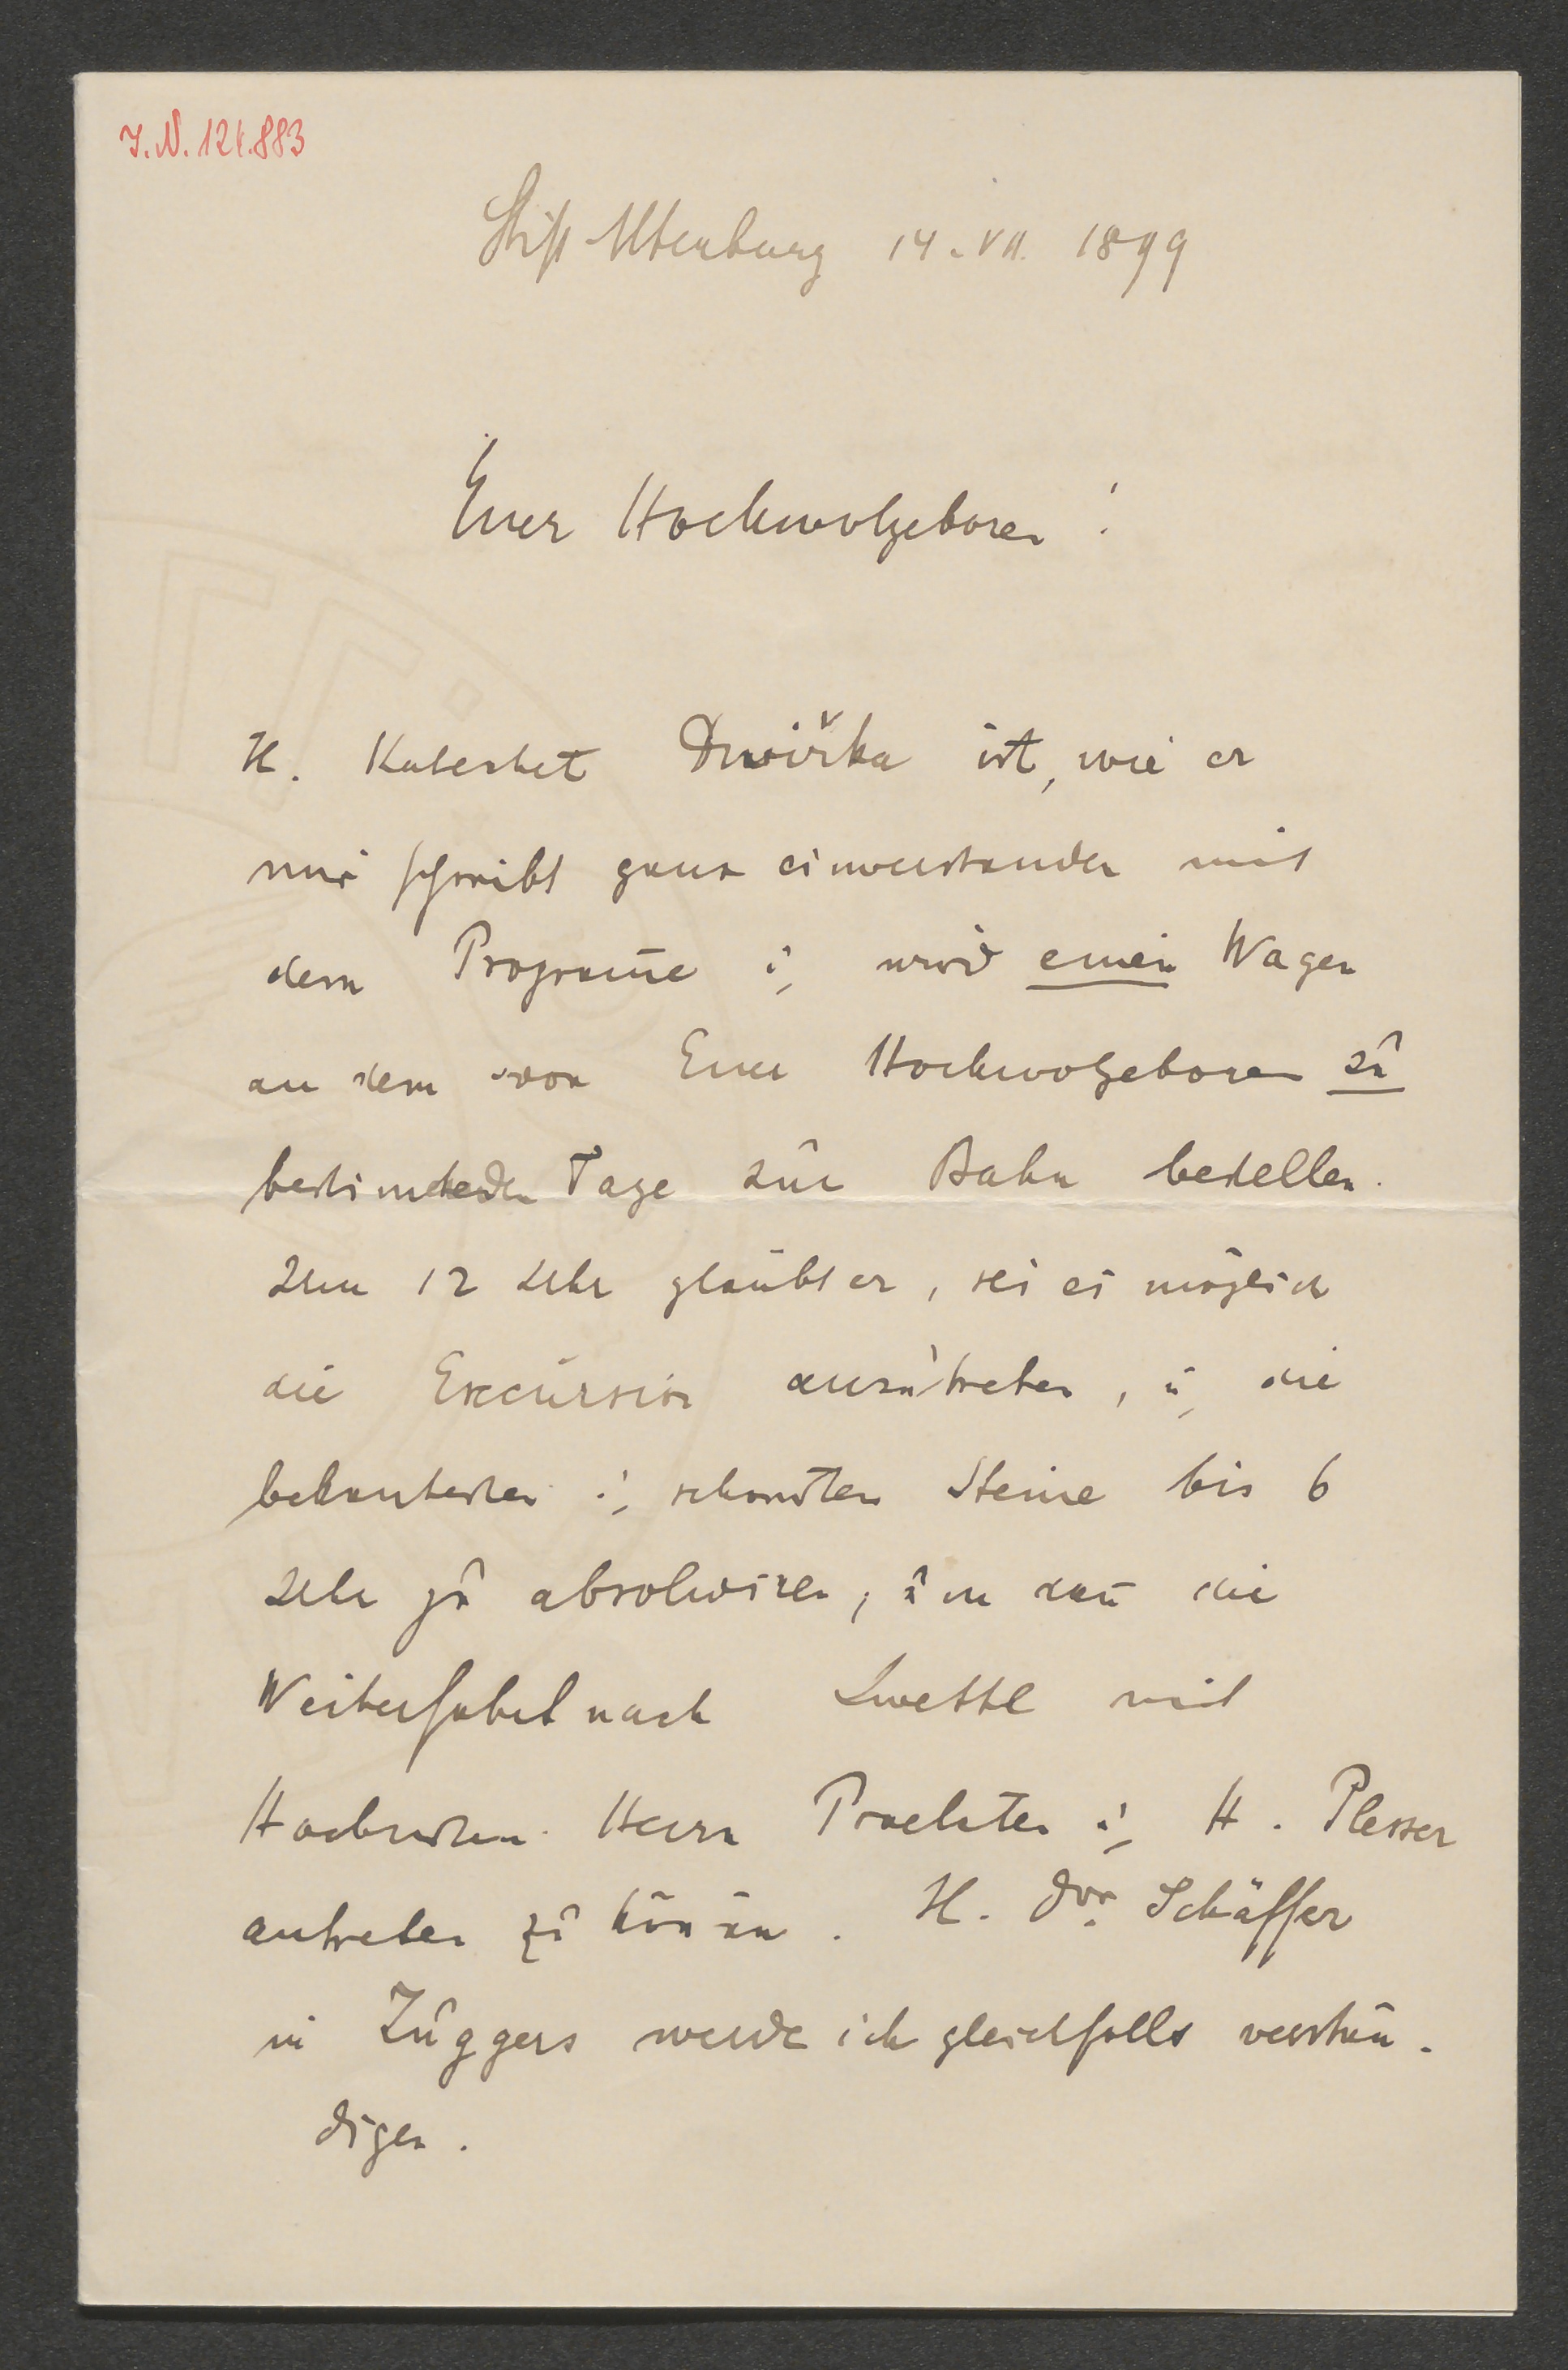 J.N. 121.883
Stift Altenburg 14. VII. 1899
Euer Hochwolgeboren!
H. Katechet Dwořka ist, wie er
mir schreibt ganz einverstanden mit
dem Programm̄e u, wird einen Wagen
an dem von Euer Hochwolgeboren zu
bestim̄enden Tage zur Bahn bestellen.
Um 12 Uhr glaubt er, sei es möglich
die Excursion anzutreten, u, die
bekanntesten u, schönsten Steine bis 6
Uhr zu absolviren, um dan̄ die
Weiterfahrt nach Zwettl mit
Hochwden. Herrn Praelaten u, H. Plesser
antreten zu kön̄en. H. Dor. Schäffer
in Zuggers werde ich gleichfalls verstän-
digen.